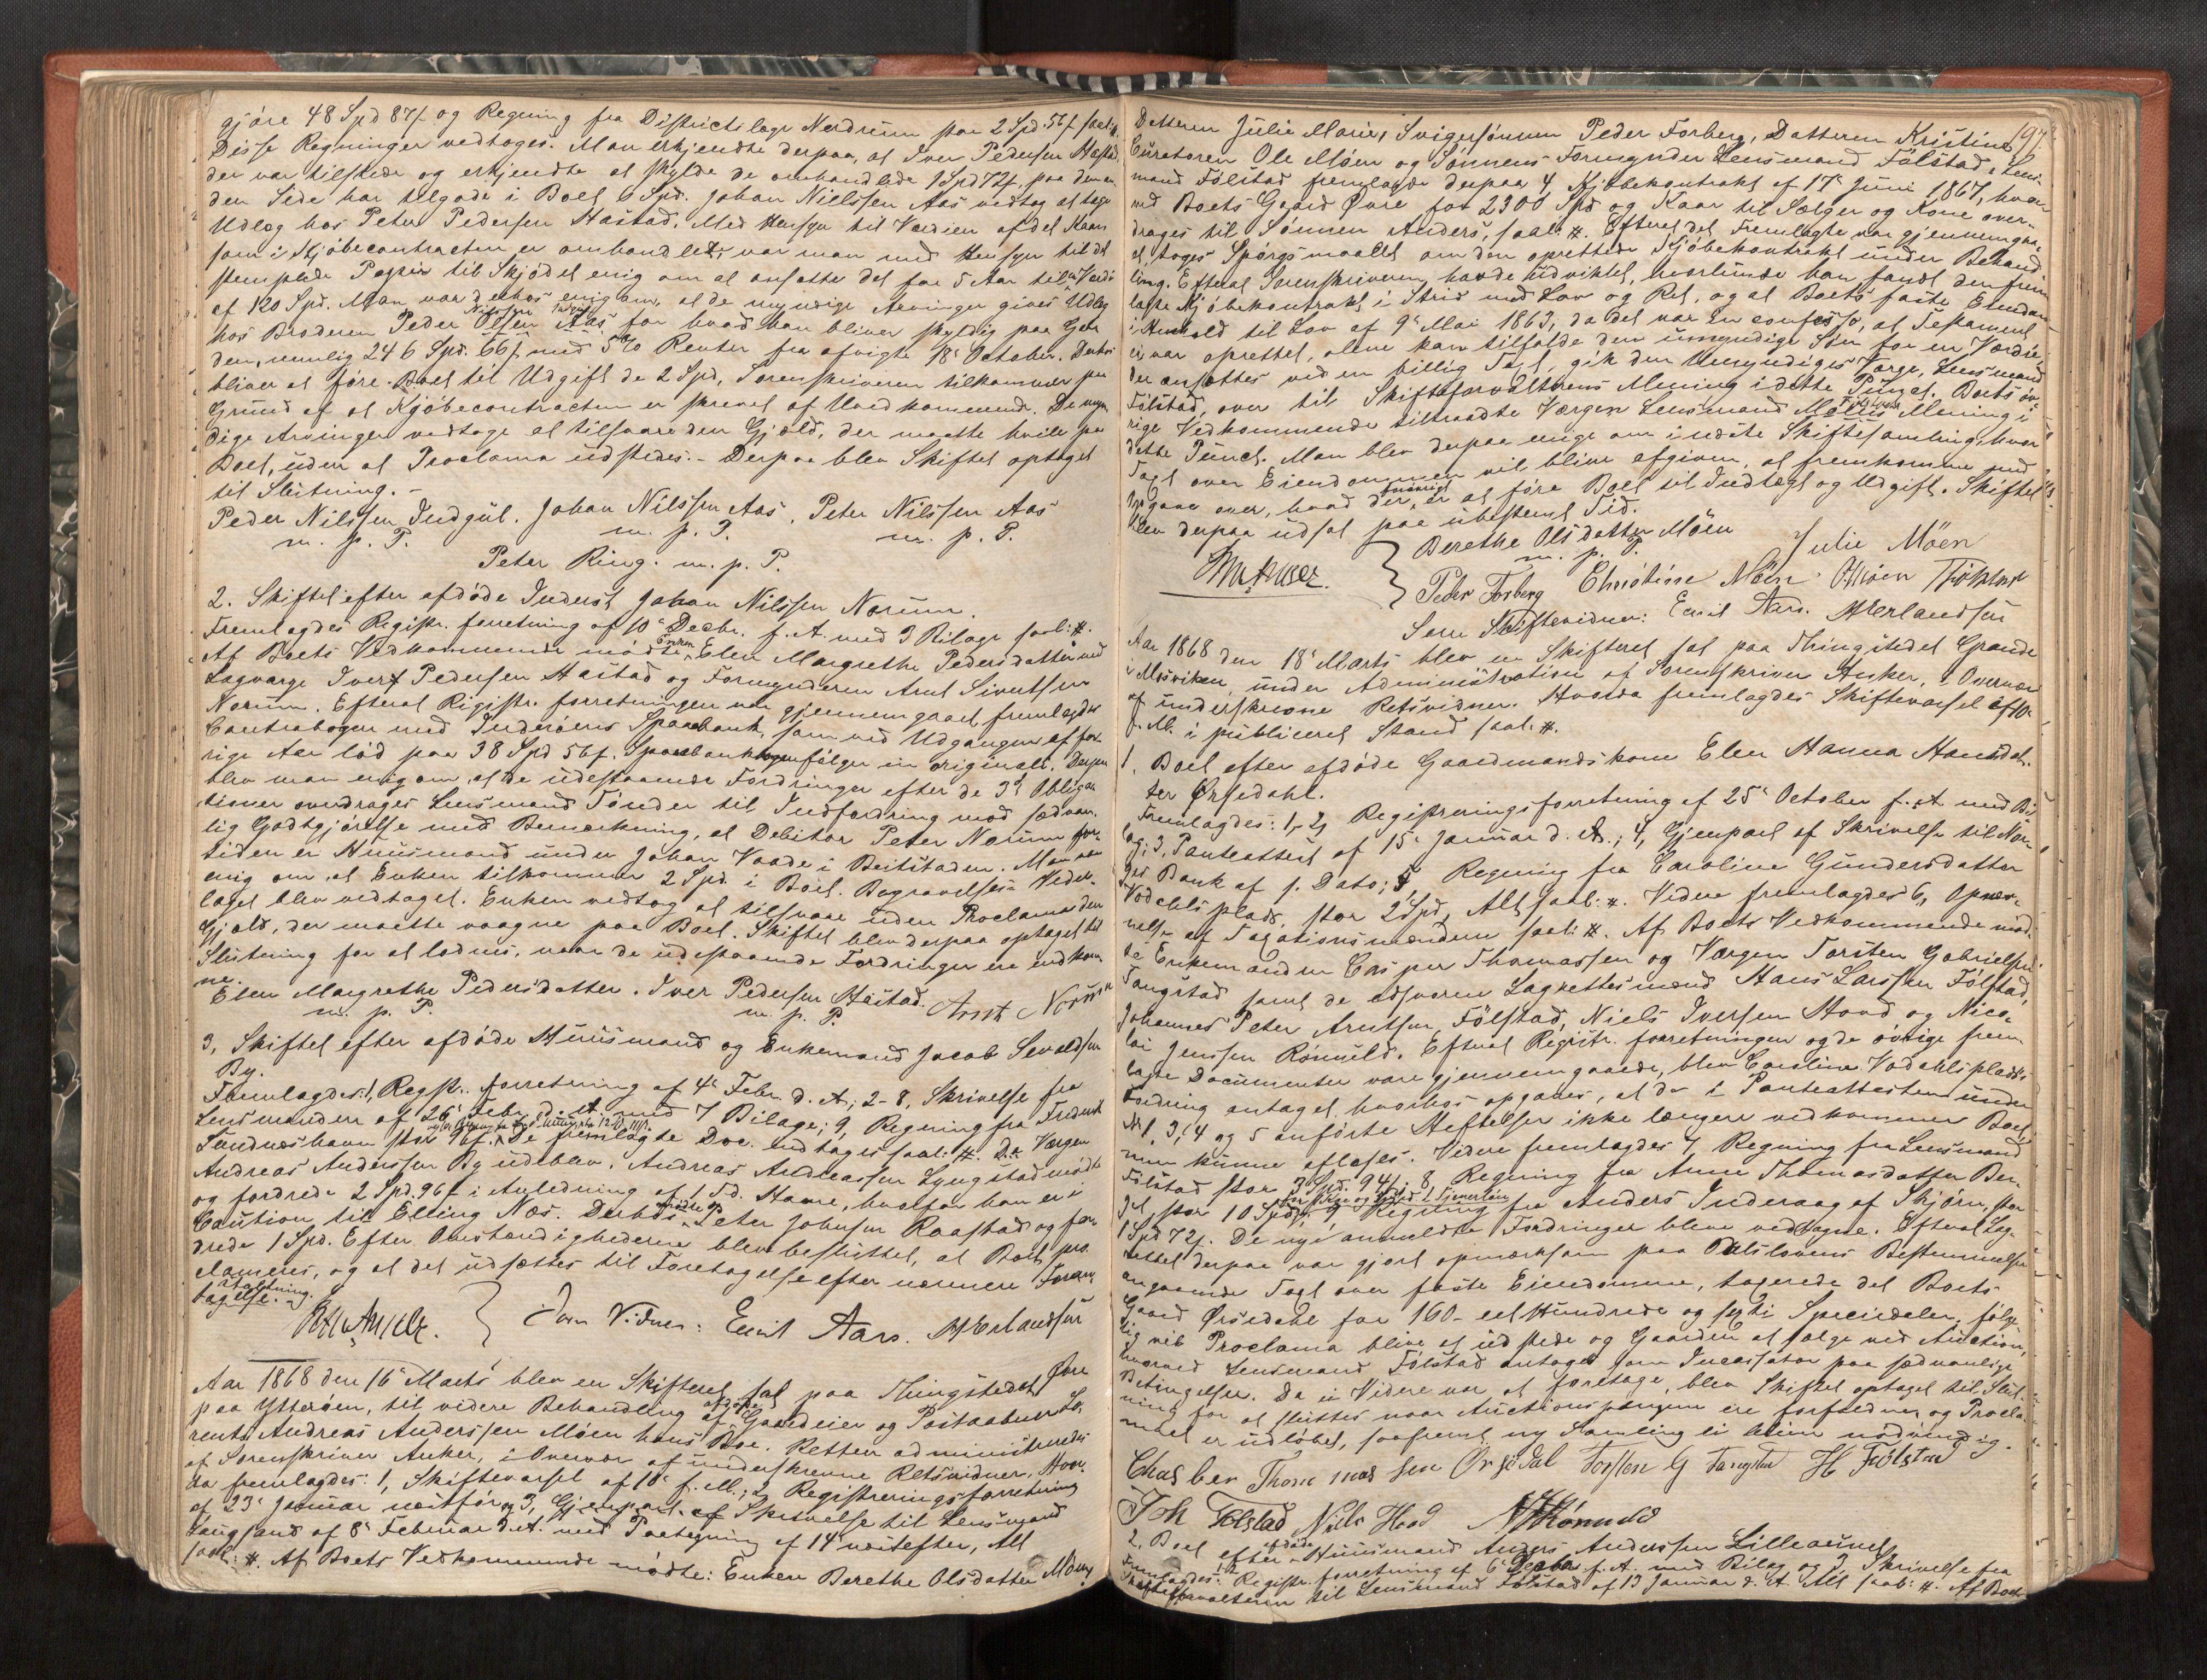 gjöre 48 Spd 87 f og Regning fra Districtslæge Nerdrum stor 2 Spd 56 f saal: #.
Disse Regninger vedtoges. Man erkjendte derpaa, at Iver Pedersen Hastad,
der var tilstede og erkjendte at skylde de omhandlede 1 Spd 72 f, paa den an-
den Side har tilgode i Boet 6 Spd. Johan Nielssen Aas vedtog at tage
Udlæg hos Peter Pedersen Hastad. Med Hensyn til Værdien af det Kaar,
som i Kjøbecontracten er omhandlet, var man med Hensyn til det
stemplede Papir til Skjødet enig om at ansætte det for 5 Aar til en Værdi
af 120 Spd. Man var derhos enig om, at de myndige Arvinger gives Udlæg
hos Broderen Peder Nilssen Indgul for hvad han bliver skyldig paa Gaar-
den, nemlig 246 Spd. 66 f, med 5 % Renter fra afvigte 18de October. Derhos
bliver at före Boet til Udgift de 2 Spd, Sorenskriveren tilkommer paa
Grund af at Kjøbecontracten er skrevet af Uvedkommende. De myn-
dige Arvinger vedtoge at tilsvare den Gjæld, der maatte hvile paa
Boet, uden at Proclama udstedes. - Derpaa blev Skiftet optaget
til Slutning. -
Peder Nilssen Indgul. Johan Nilssen Aas, Peter Nilssen Aas
m. p. P. m. p. P. m. p. P.
Peter Ring. m. p. P.
2. Skiftet efter afdøde Inderst Johan Nilssen Norum.
Fremlagdes Registr. forretning af 10de Decbr. f. A. med 3 Bilage saal: #.
Af Boets Vedkommende mødte Enken Elen Margrethe Pedersdatter med
Laugværge Iver Pedersen Hastad og Formynderen Arnt Sivertsen
Norum. Efterat Registr. forretningen var gjennemgaaet, fremlagdes
Contrabogen med Inderøens Sparebank, som ved Udgangen af for-
rige Aar lød paa 38 Spd 56 f. Sparebankbogen fölger in originali. Derpaa
blev man enig om, at de udestaaende Fordringer efter de 3de Obliga-
tioner overdrages Lensmand Tönder til Indfordring mod sædvan-
lig Godtgjörelse med Bemærkning, at Debitor Peter Norum for-
tiden er Huusmand under Johan Vaade i Beitstaden. Man var
enig om, at Enken tilkommer 2 Spd. i Boet. Begravelses Veder-
laget blev vedtaget. Enken vedtog at tilsvare uden Proclama den
Gjæld, der maatte vaagne paa Boet. Skiftet blev derpaa optaget til
Slutning for at lodnes, naar de udestaaende Fordringer ere indkom-
ne.
Elen Margrethe Pedersdatter. Iver Pedersen Hastad. Arnt Norum
m. p. P. m. p. P.
3, Skiftet efter afdöde Huusmand og Enkemand Jacob Sevaldsen
By.
Fremlagdes: 1, Registr. forretning af 4de Febr. d. A.; 2-8, Skrivelse fra
Lensmanden af 26de Febr. d. A. med 7 Bilage; 9, Regning fra Frederik
Sundneshavn stor 96 f. De fremlagte Doc. indtages saal: #. Værgen
Andreas Anderssen By udeblev. Andreas Andreassen Lyngstad mødte
og fordrede 2 Spd. 96 f i Anledning af 1 Td. Havre, hvorfor han er i
Caution til Elling Næs. Derhos mødte Peter Johnsen Raastad og for-
drede 1 Spd. Efter Omstændighederne blev besluttet, at Boet pro-
clameres, og at det udsættes til Foretagelse efter nærmere Foran-
staltning.
tagelse. -
HAnker. } Som Vidner: Emil Aars. MErlandsen
Aar 1868 den 16de Marts blev en Skifteret sat paa Thingstedet Øvre
paa Ytterøen, til videre Behandling af afdøde Gaardeier og Postaabner Lo-
rents Andreas Anderssen Möen hans Boe. Retten administreredes
af Sorenskriver Anker, i Overvær af underskrevne Retsvidner. Hvor-
da fremlagdes: 1, Skiftevarsel af 10de f. M.; 2, Registreringsforretning
af 23de Januar næstför; 3, Gjenpart af Skrivelse til Lensmand
Haugsand af 8de Februar d. A. med Paategning af 14de næstefter, Alt
saal: #. Af Boets Vedkommende mødte: Enken Berethe Olsdatter Möen,
197.
Datteren Julie Marie, Svigersönnen Peder Forberg, Datteren Kristine,
Curatoren Ole Möen og Sönnens Formynder Lensmand Fölstad. Lens-
mand Fölstad fremlagde derpaa 4, Kjöbekontrakt af 17de Juni 1867, hvor-
ved Boets Gaard Øvre for 2300 Spd og Kaar til Sælger og Kone over-
drages til Sönnen Anders, saal: #. Efterat det Fremlagte var gjennemgaa-
et, toges Spörgsmaalet om den oprettede Kjöbekontrakt under Behand-
ling. Efterat Sorenskriveren havde udviklet, hvorlunde han fandt den frem-
lagte Kjöbekontrakt i Strid med Lov og Ret, og at Boets faste Eiendom
i Henhold til Lov af 9de Mai 1863, da det var in confesso, at Testament
ei var oprettet, alene kan tilfalde den umyndige Sön for en Værdie
der ansættes ved en billig Taxt, gik den Umyndiges Værge, Lensmand
Fölstad, over til Skifteforvalterens Mening i dette Punct. Boets öv-
rige Vedkommende tiltraadte Værgen Lensmand Fölstads Mening i
dette Punct. Man blev derpaa enige om i næste Skiftesamling, hvor
Taxt over Eiendommen vil blive afgiven, at fremkomme med
Opgave over, hvad der forövrigt er at före Boet til Indtægt og Udgift. Skiftet
blev derpaa udsat paa ubestemt Tid.
HAnker. } Berethe Olsdatter Möen Julie Möen
m. p. P.
Peder Forberg Christine Möen OMöen Fölstad
Som Skiftevidner: Emil Aars. MErlandsen
Aar 1868 den 18de Marts blev en Skifteret sat paa Thingstedet Grande
i Mosviken, under Administration af Sorenskriver Anker, i Overvær
af underskrevne Retsvidner. Hvorda fremlagdes Skiftevarsel af 10de
f. M. i publiceret Stand saal: #.
1, Boet efter afdöde Gaardmandskone Elen Hanna Hansdat-
ter Ørsedahl.
Fremlagdes: 1, 2, Registreringsforretning af 25de October f. A. med Bi-
lag; 3, Panteattest af 15de Januar d. A.; 4, Gjenpart af Skrivelse til Nor-
ges Bank af s. Dato; 5, Regning fra Caroline Gundersdatter
Vodahlsplads, stor 2 Spd, Alt saal: #. Videre fremlagdes 6, Opnæv-
nelse af Taxationsmændene saal: #. Af Boets Vedkommende mød-
te Enkemanden Casper Thomassen og Værgen Torsten Gabrielsen
Tangstad samt de edsvorne Laugrettesmænd Hans Larssen Fölstad,
Johannes Peter Arntsen Fölstad, Niels Iversen Hood og Nico-
lai Jenssen Römuld. Efterat Registr. forretningen og de övrige frem-
lagte Documenter vare gjennemgaaede, blev Caroline Vodahlsplads's
Fordring antaget, hvorhos opgaves, at de i Panteattesten under
No 1, 3, 4 og 5 anförte Heftelser ikke længere vedkommer Boet,
men kunne aflæses. Videre fremlagdes 7, Regning fra Lensmand
Fölstad stor 3 Spd. 94 f; 8, Regning fra Anne Thomasdatter Ber-
get, stor 10 Spd; 9, Regning fra Anders Inderaag af Skjörn, stor
1 Spd 72 f. De nye anmeldte Fordringer bleve vedtagne. Efterat Lag-
rettet derpaa var gjort opmærksom paa Odelslovens Bestemmelse
angaaende Taxt over faste Eiendomme, taxerede det Boets
Gaard Ørsedahl for 160 - eet Hundrede og sexti Speciedaler, fölge-
lig vil Proclama blive at udstede og Gaarden at sælge ved Auction,
hvorved Lensmand Fölstad antages som Incassator paa sædvanlige
Betingelser. Da ei Videre var at foretage, blev Skiftet optaget til Slut-
ning for at sluttes naar Auctionspengene ere forfaldne og Procla-
maet er udlöbet, saafremt ny Samling ei bliver nödvendig.
Chasber Thommas sen Ørsödal Torsten G Tangstad H Fölstad
Joh Fölstad Niels Hood NJRömuld
2. Boet efter afdöde Huusmand Anders Anderssen Lilleaunet.
Fremlagdes: Registr. forretning af 6te Decbr f. A. med Bilag og 3, Skrivelse fra
Skifteforvalteren til Lensmand Fölstad af 13 Januar d. A. Alt saal: #. Af Boets